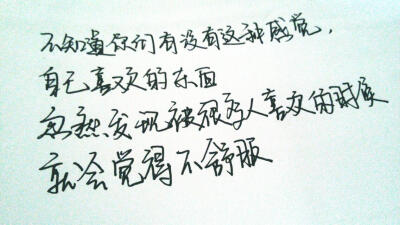 不知道你们有没有这种感觉，
自己喜欢的东西
忽然发现被很多人喜欢的时候
就会觉得不舒服